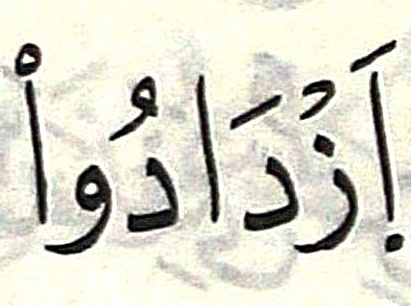 اَ۪زْدَادُواْ